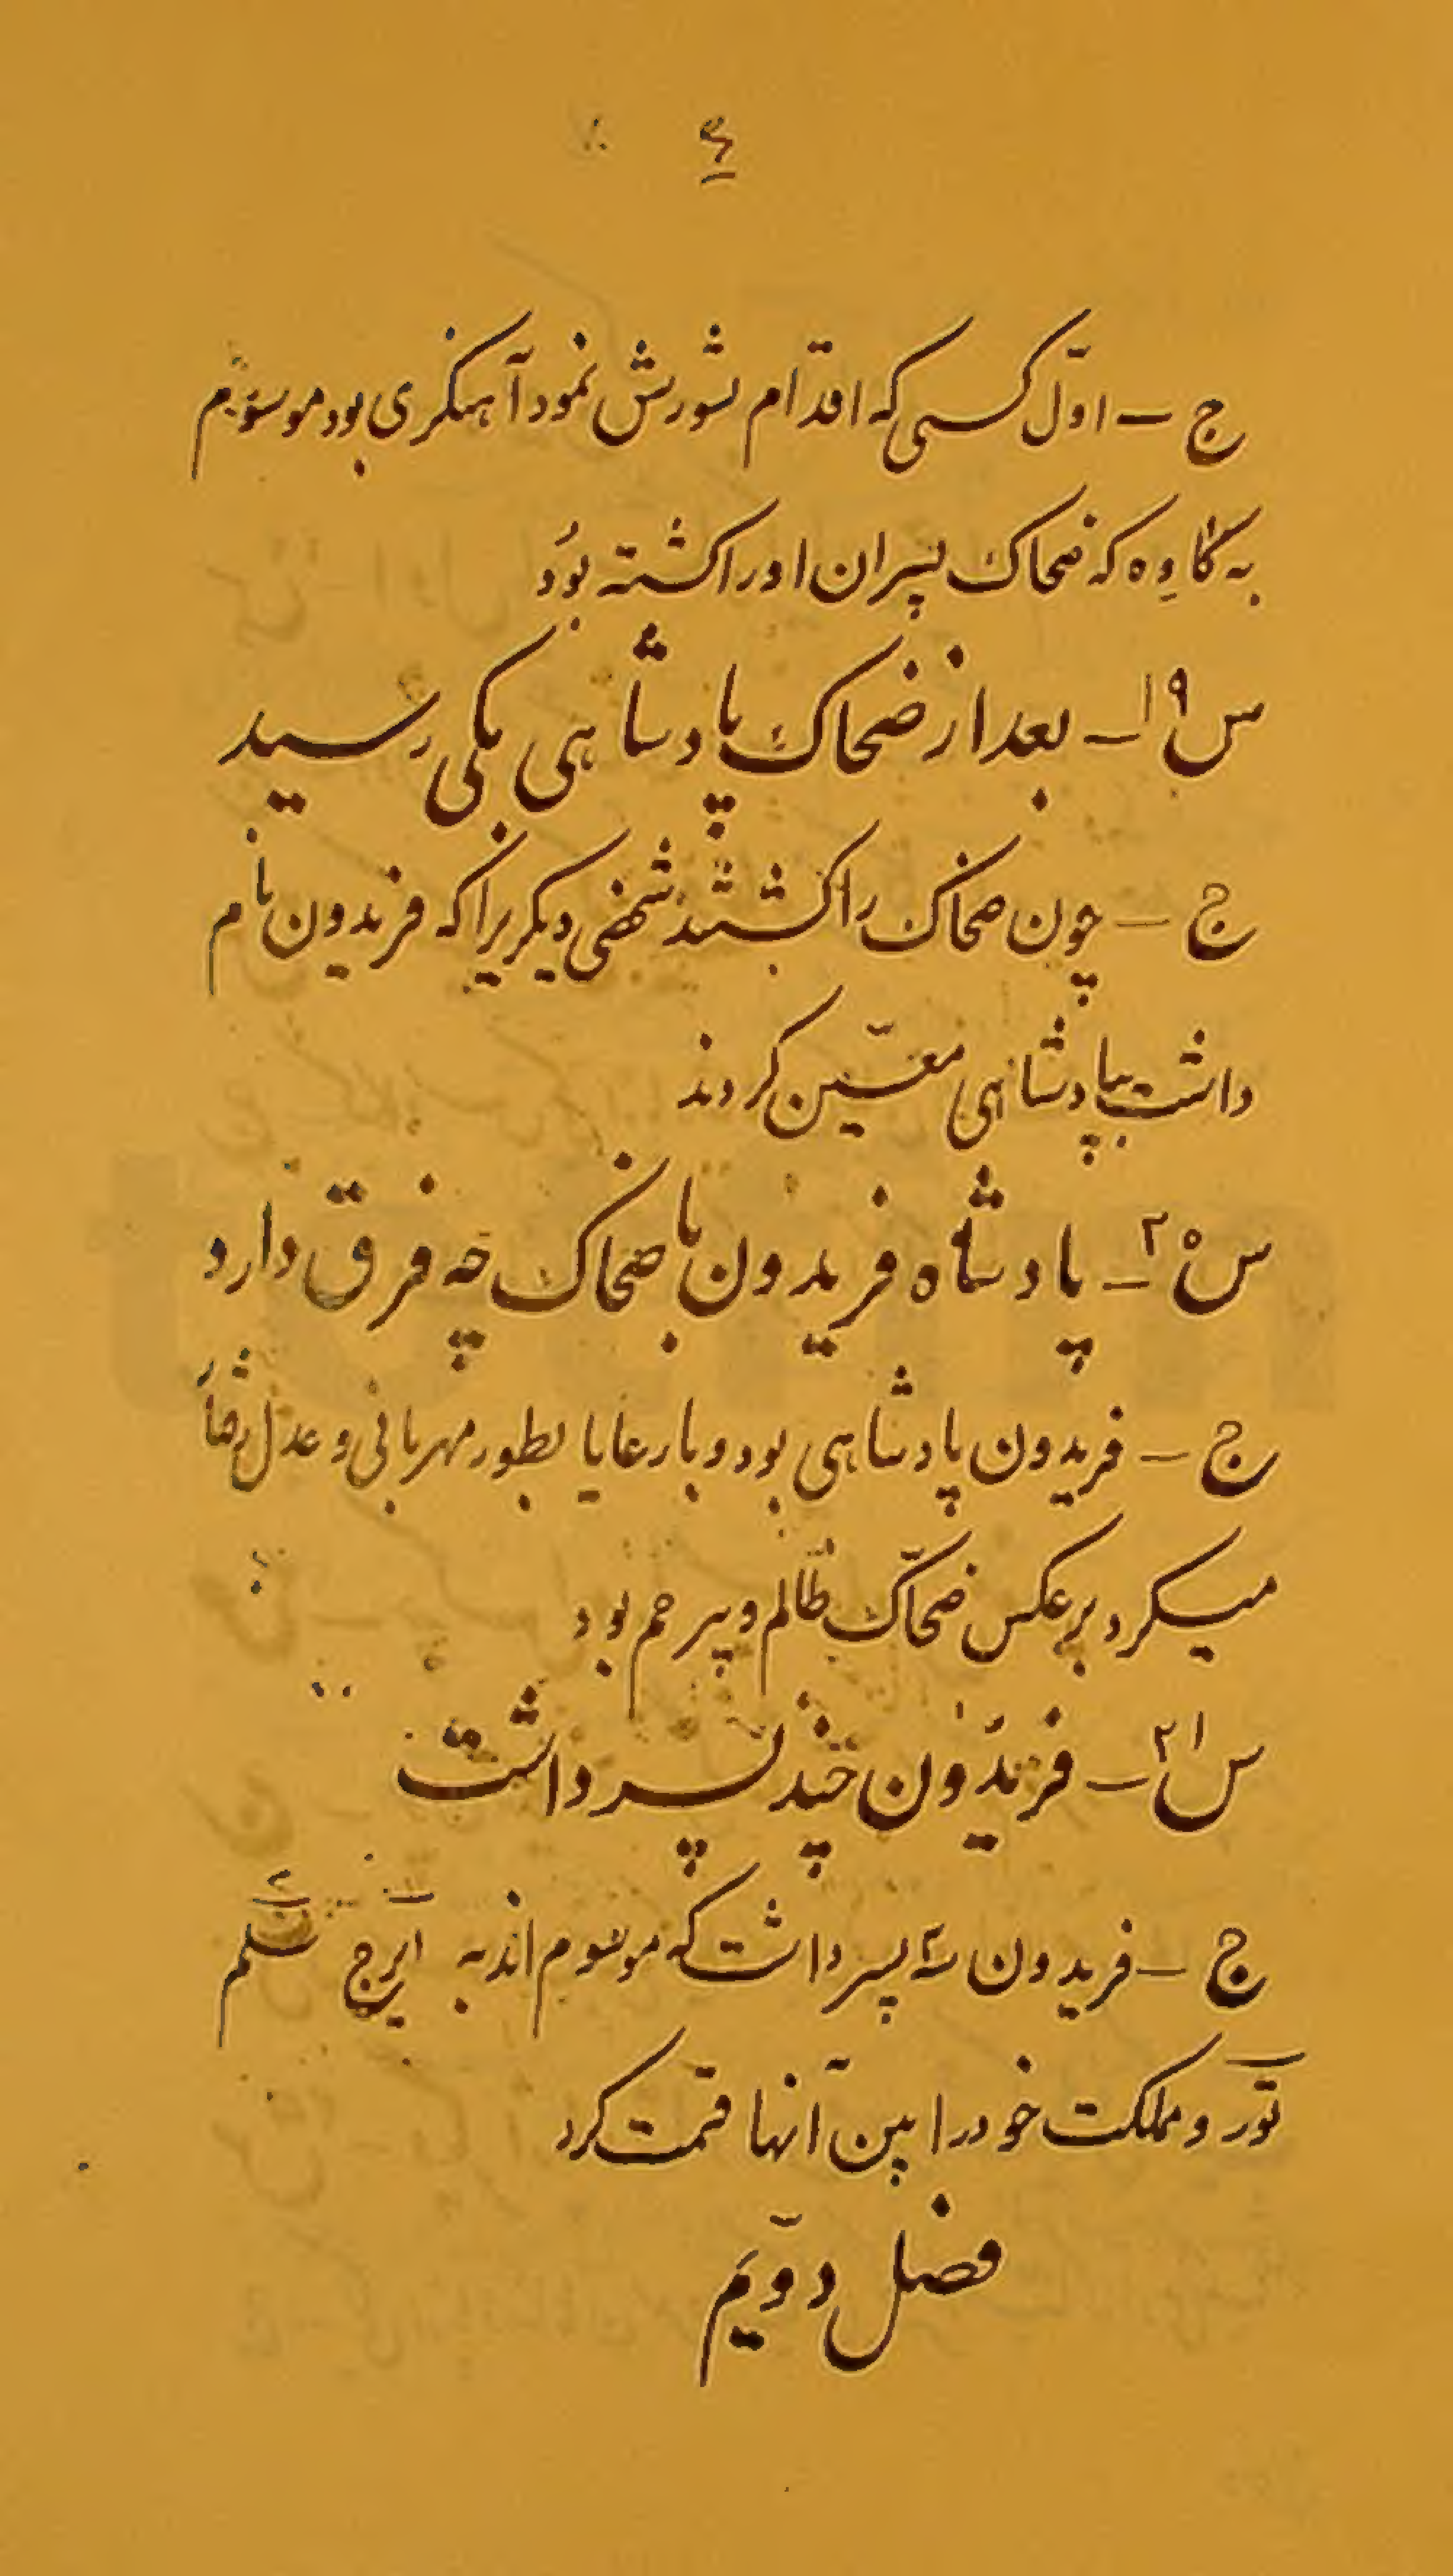 ۶
ج – اوّل کسی که اقدام بشورش نمود آهنکری بود موسوم
به کاوِه که ضحاک پسران او را کشته بوُد
س ۱۹ – بعد از ضحاک پادشاهی بکی رسید
ج – چون ضحاک را بکشتند شخصی دیکریرا که فریدون نام
داشت بپادشاهی معیّن کردند
س ۲۰ – پادشاه فریدون با ضحاک چه فرق دارد
ج – فریدون پادشاهی بود و با رعایا بطور مهربانی و عدل رفتار
میکرد برعکس ضحّاک ظالم و بیرحم بود
س ۲۱ – فریدون چند پسر داشت
ج – فریدون سه پسر داشت که موسوم اند به ایرج سلم
تور و مملکت خود را بین آنها قسمت کرد
فصل دویّم